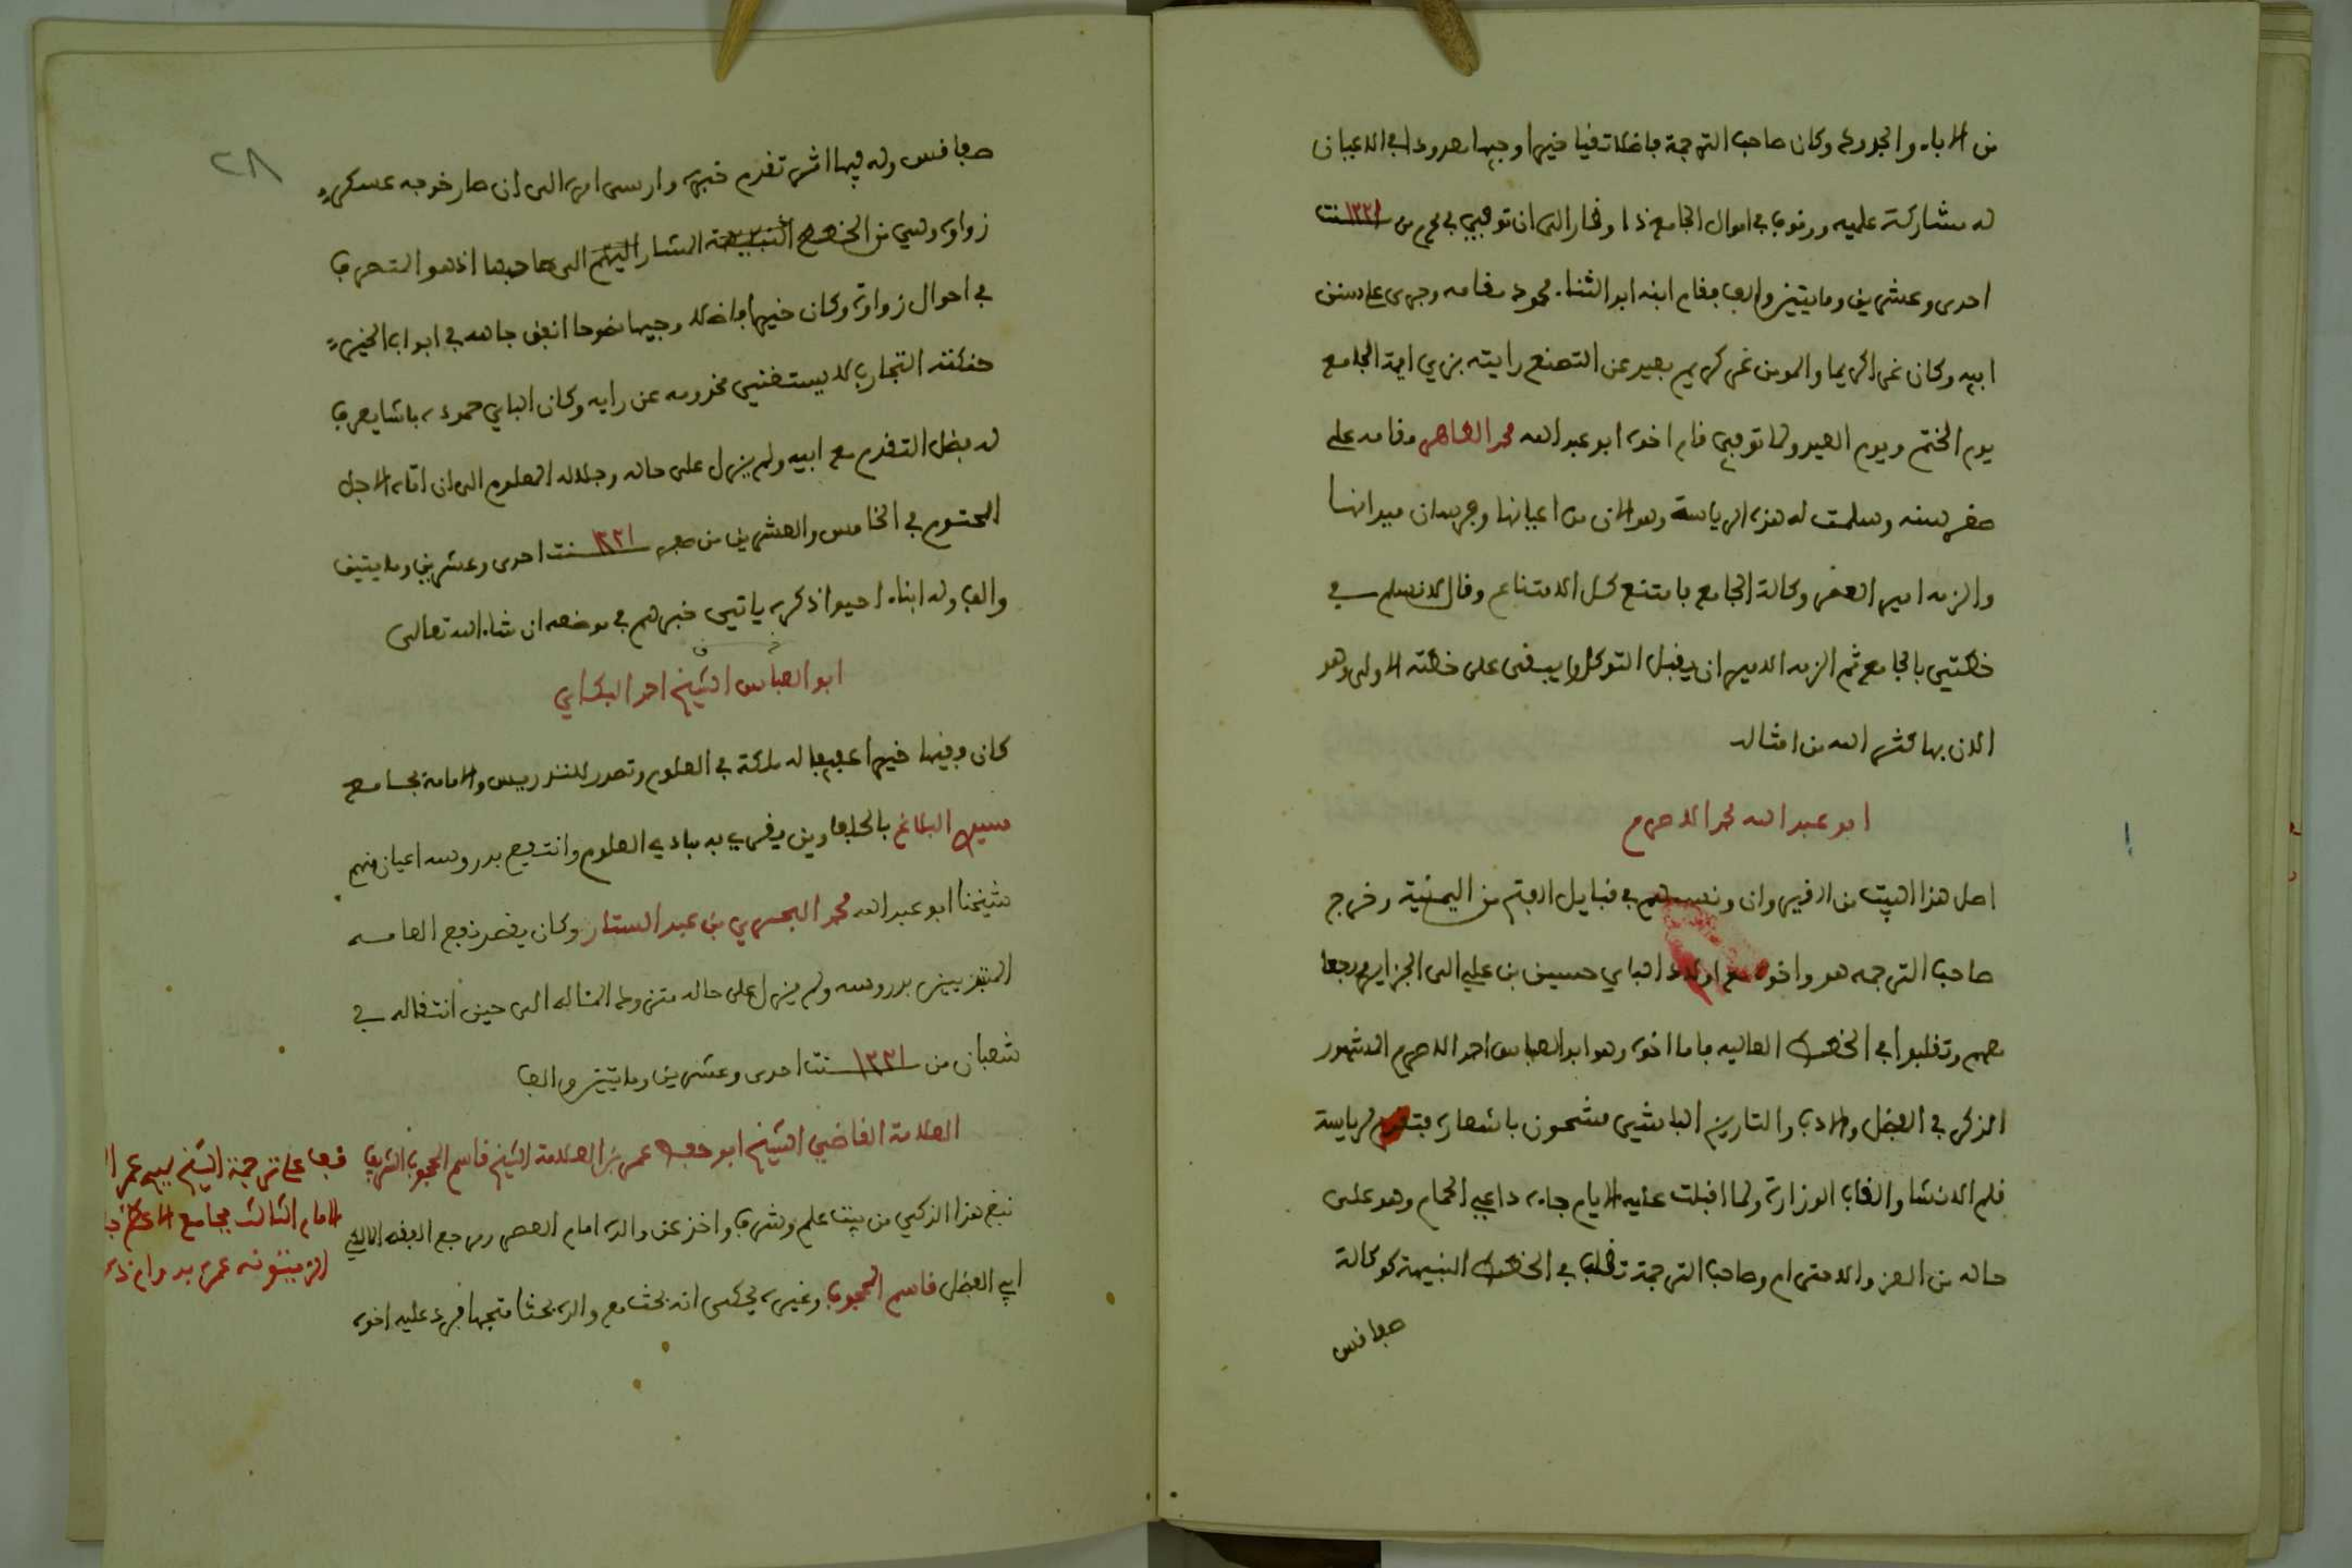 من الاباء والجدود وكان صاحب الترجمة فاضلا تقيا خيرا وجيها معدودا في الاعيان
له مشاركة علمية ووقوف في احوال الجامع ذا وقار الى ان توفي في محرم من سنة ١٢٢١
احدى وعشرين ومايتين والف فقام ابنه ابو الثناء محمود مقامه وجرى على سنن
ابيه وكان غرا كريما والمومن غر كريم بعيد عن التصنع رايته بزي ايمة الجامع
يوم الختم ويوم العيد ولما توفي قام اخوه ابو عبد الله محمد الطاهر مقامه على
صغر سنه وسلمت له هذه الرياسة وهو الان من اعيانها وفرسان ميدانها
والزمه امير العصر وكالة الجامع فامتنع كل الامتناع وقال لا نسلم في
خطتي بالجامع ثم الزمه الامير ان يقبل التوكل ويبقى على خطته الاولى وهو
الان بها كثر الله من امثاله
ابو عبد الله محمد الاصرم
اصل هذا البيت من القيروان ونسبهم في قبايل افهم من اليمنية وخرج
صاحب الترجمه هو واخوه مع اولاد الباي حسين بن علي الى الجزاير ورجعا
معهم وتقلبوا في الخطط العاليه فاما اخوه وهو ابو العباس احمد الاصرم المشهور
الذكر في الفضل والادب والتاريخ الباشي مشحون باشعاره فتقدم لرياسة
قلم الانشا والقاب الوزارة ولما اقبلت عليه الايام جاءه داعي الحمام وهو على
حاله من العز والاحترام وصاحب الترجمة تقلب في الخطط النبيهة كوكالة
صفاقس
٢٨
صفاقس وله فيها اثر تقدم خبره وارسى امره الى ان صار خوجه عسكر
زواوة وهي من الخطط النبيهة المشار اليهم الى صاحبها اذ هو المتصرف
في احوال زواوة وكان خيرا فاضلا وجيها نصوحا انفق جاهه في ابواب الخير
حنكته التجارب لا يستغني مخدومه عن رايه وكان الباي حموده باشا يعرف
له فضل التقدم مع ابيه ولم يزل على حاله وجلاله المعلوم الى ان اتاه الاجل
المحتوم في الخامس والعشرين من صفر سنة ١٢٢١ احدى وعشرين ومايتين
والف وله ابناء احيوا ذكره ياتي خبرهم في موضعه ان شاء الله تعالى
ابو العباس الشيخ احمد البكاي
كان فقيها خيرا عفيفا له ملكة في العلوم وتصدر للتدريس والامامة بجامع
سبط البلاغ بالحلفاوين يقري به مبادي العلوم وانتفع بدروسه اعيان منهم
شيخنا ابو عبد الله محمد البحري بن عبد الستار وكان يقصد نفع العامه
المتقربين بدروسه ولم يزل على حاله متزودا لمثاله الى حين انتقاله في
شعبان من سنة ١٢٢١ احدى وعشرين ومايتين والف
العلامة القاضي الشيخ ابو حفص عمر بن العلامة الشيخ قاسم المحجوب الشريف
نبغ هذا الذكي من بيت علم وشرف واخذ عن والده امام العصر ومرجع الفقه المالكي
ابي الفضل قاسم المحجوب وغيره يحكى انه بحث مع والده بحثا متجها فرد عليه اخوه
قف على ترجمة الشيخ سيدي عمر ا
الامام الثالث بجامع الاعظم جا
الزيتونه عمره بدوام ذكر